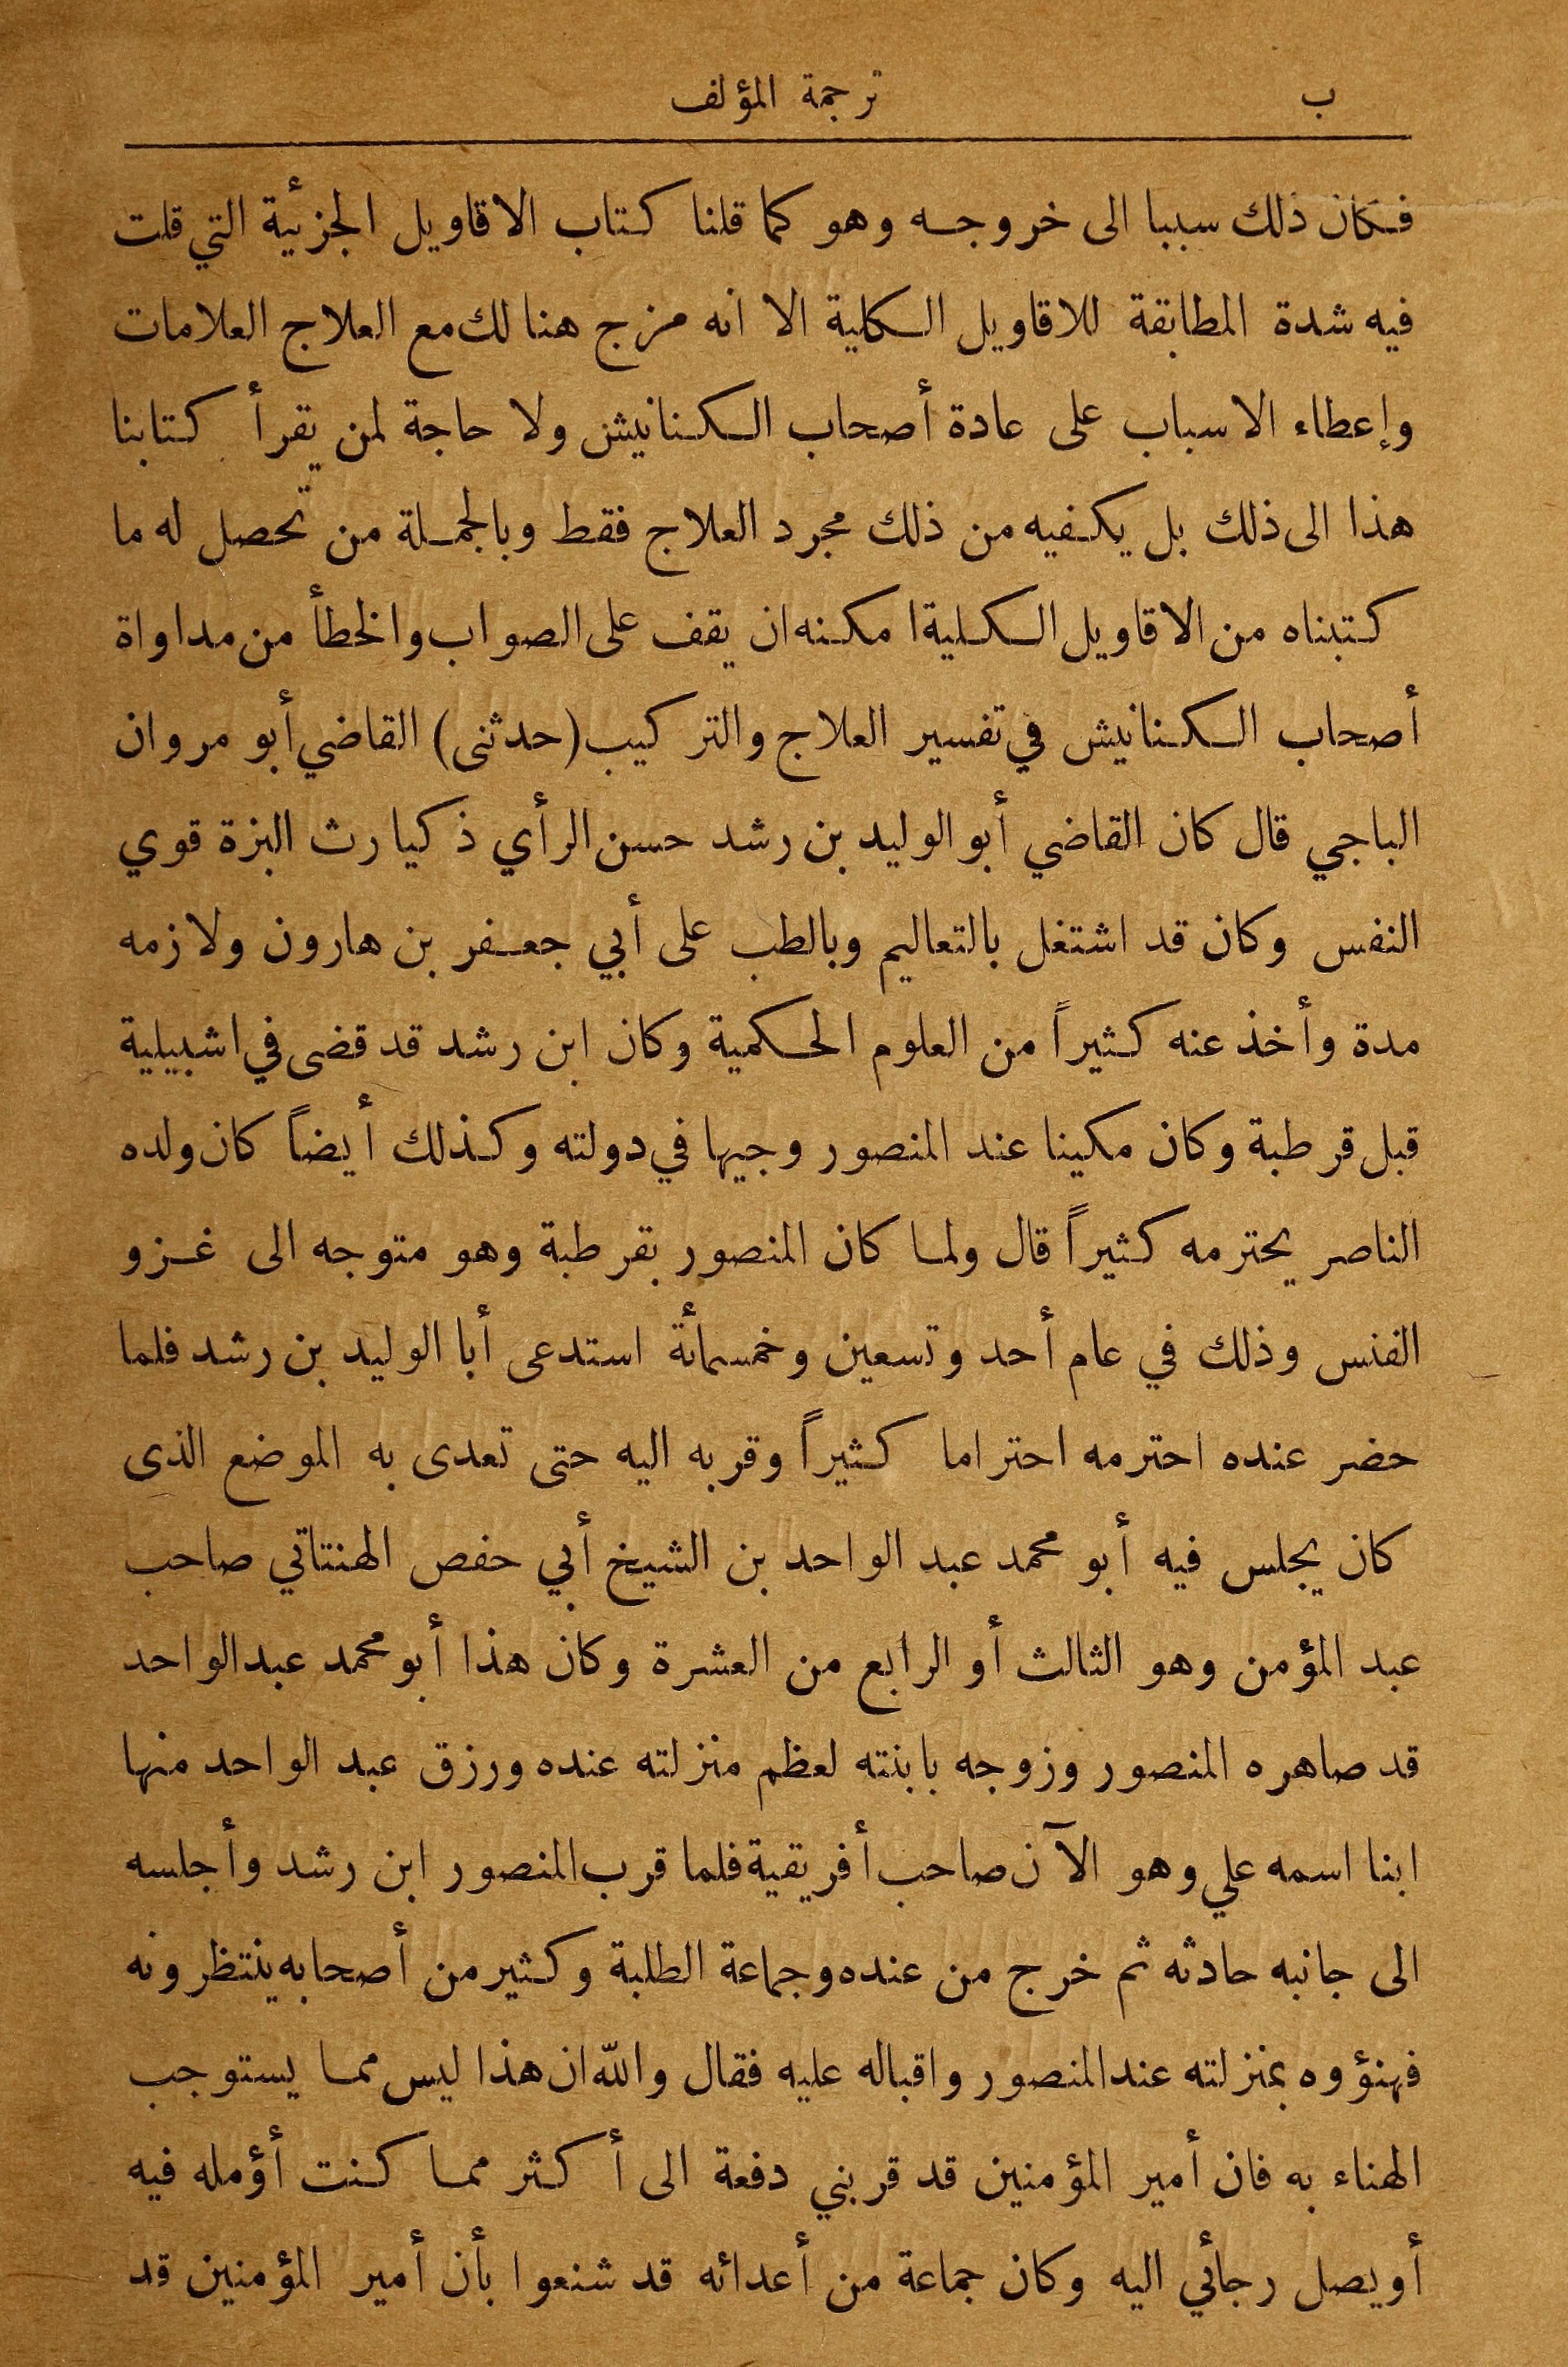 ب
ترجمة المؤلف
فكان ذلك سببا الى خروجه وهو كما قلنا كتاب الاقاويل الجزئية التي قلت
فيه شدة المطابقة للاقاويل الكلية الا انه مزج هنالك مع العلاج العلامات
وإعطاء الاسباب على عادة أصحاب الكنانيش ولا حاجة لمن يقرأ كتابنا
هذا الى ذلك بل يكفيه من ذلك مجرد العلاج فقط وبالجملة من تحصل له ما
كتبناه من الاقاويل الكلية امكنه ان يقف على الصواب والخطأ من مداواة
أصحاب الكنانيش في تفسير العلاج والتركيب (حدثنى) القاضي أبو مروان
الباجي قال كان القاضي أبو الوليد بن رشد حسن الرأي ذكيا رث البزة قوي
النفس وكان قد اشتغل بالتعاليم وبالطب على أبي جعفر بن هارون ولازمه
مدة وأخذ عنه كثيراً من العلوم الحكمية وكان ابن رشد قد قضى في اشبيلية
قبل قرطبة وكان مكينا عند المنصور وجيها في دولته وكذلك أيضاً كان ولده
الناصر يحترمه كثيراً قال ولما كان المنصور بقرطبة وهو متوجه الى غزو
الفنس وذلك في عام أحد وتسعين وخمسمائة استدعى أبا الوليد بن رشد فلما
حضر عنده احترمه احتراما كثيراً وقربه اليه حتى تعدى به الموضع الذى
كان يجلس فيه أبو محمد عبد الواحد بن الشيخ أبي حفص الهنتاتي صاحب
عبد المؤمن وهو الثالث أو الرابع من العشرة وكان هذا أبو محمد عبد الواحد
قد صاهره المنصور وزوجه بابنته لعظم منزلته عنده ورزق عبد الواحد منها
ابنا اسمه علي وهو الآن صاحب أفريقية فلما قرب المنصور ابن رشد وأجلسه
الى جانبه حادثه ثم خرج من عنده وجماعة الطلبة وكثير من أصحابه ينتظرونه
فهنؤوه بمنزلته عند المنصور واقباله عليه فقال والله ان هذا ليس مما يستوجب
الهناء به فان أمير المؤمنين قد قربني دفعة الى أكثر مما كنت أؤمله فيه
أو يصل رجائي اليه وكان جماعة من أعدائه قد شنعوا بأن أمير المؤمنين قد